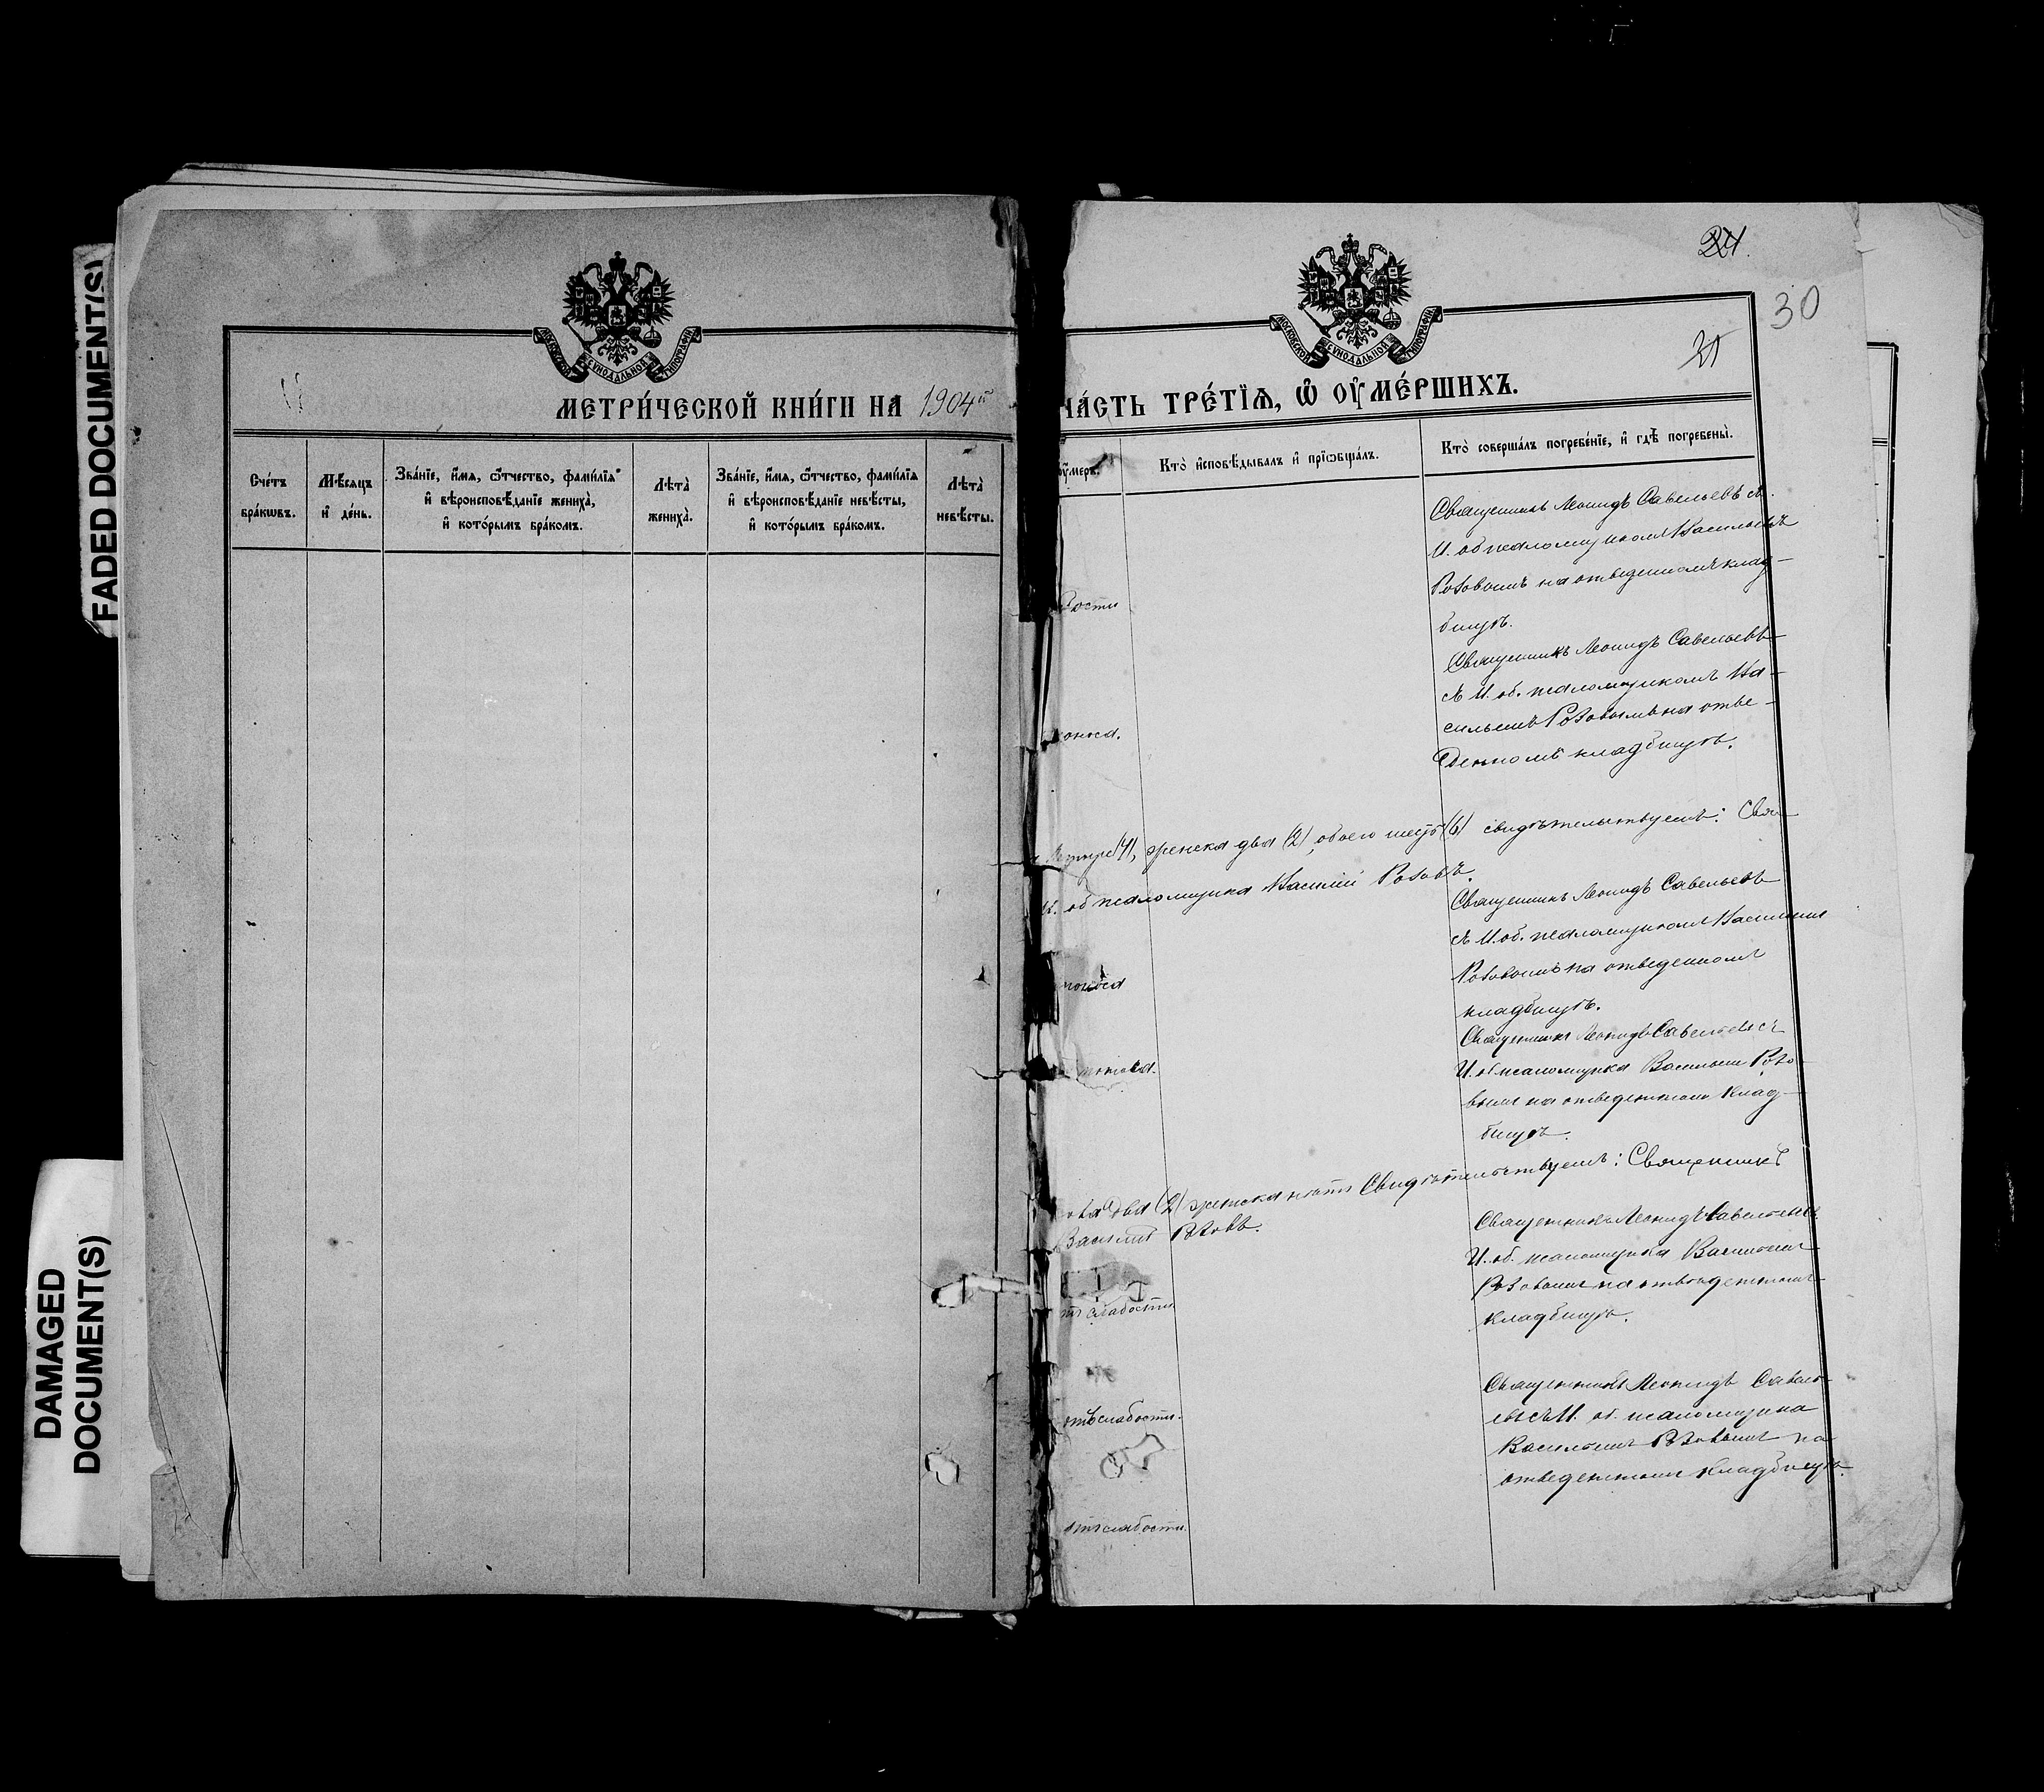 FADED DOCUMENT(S)
DAMAGED
DOCUMENT(S)
МОСКОВСКОЙ СУНОДАЛЬНОЙ ТИПОГРАФІИ
МЕТРИ́ЧЕСКОЙ КНИ́ГИ НА 1904й
Сче́тъ
бра́кѡвъ.
Мѣ́сяцъ
и҆ де́нь.
Зва́нїе, и҆́мѧ, ѻ҆́тчество, фами́лїѧ
и҆ вѣроисповѣ́данїе жениха̀,
и҆ кото́рымъ бра́комъ.
Лѣта̀
жениха̀.
Зва́нїе, и҆́мѧ, ѻ҆́тчество, фами́лїѧ
и҆ вѣроисповѣ́данїе невѣ́сты,
и҆ кото́рымъ бра́комъ.
Лѣта̀
невѣ́сты.
24.
30
МОСКОВСКОЙ СУНОДАЛЬНОЙ ТИПОГРАФІИ
ЧА́СТЬ ТРЕ́ТЇѦ, Ѡ҆ ОУ҆МЕ́РШИХЪ.
оу҆́меръ.
Кто̀ и҆сповѣ́дывалъ и҆ прїѡбща́лъ.
Кто̀ соверша́лъ погребе́нїе, и҆ гдѣ̀ погребены̀.
Священникъ Леонидъ Савельевъ съ
И. об псаломщикомъ Васильемъ
Розовымъ на отведенномъ клад-
бищѣ.
Священникъ Леонидъ Савельевъ
съ И. об. псаломщикомъ Ва-
сильемъ Розовымъ на отве-
денномъ кладбищѣ.
четыре (4), женска два (2), обоего шесть (6) свидѣтельствуемъ: Свя-
И. об псаломщика Василій Розовъ.
Священникъ Леонидъ Савельевъ
съ И. об. псаломщикомъ Василіемъ
Розовымъ на отведенномъ
кладбищѣ.
поноса
Священникъ Леонидъ Савельевъ съ
И. об псаломщика Васильем Розо-
вымъ на отведенномъ клад-
бищѣ.
два (2) женска нѣтъ Свидѣтельствуемъ: Священникъ
Василій Розовъ.
Священникъ Леонидъ Савельевъ
И. об. псаломщика Васильемъ
Розовымъ на отведенномъ
кладбищѣ.
отъ слабости
Священникъ Леонидъ Савель-
евъ съ И. об. псаломщика
Васильемъ Розовымъ на
отведенномъ кладбищѣ.
отъ слабости.
отъ слабости.